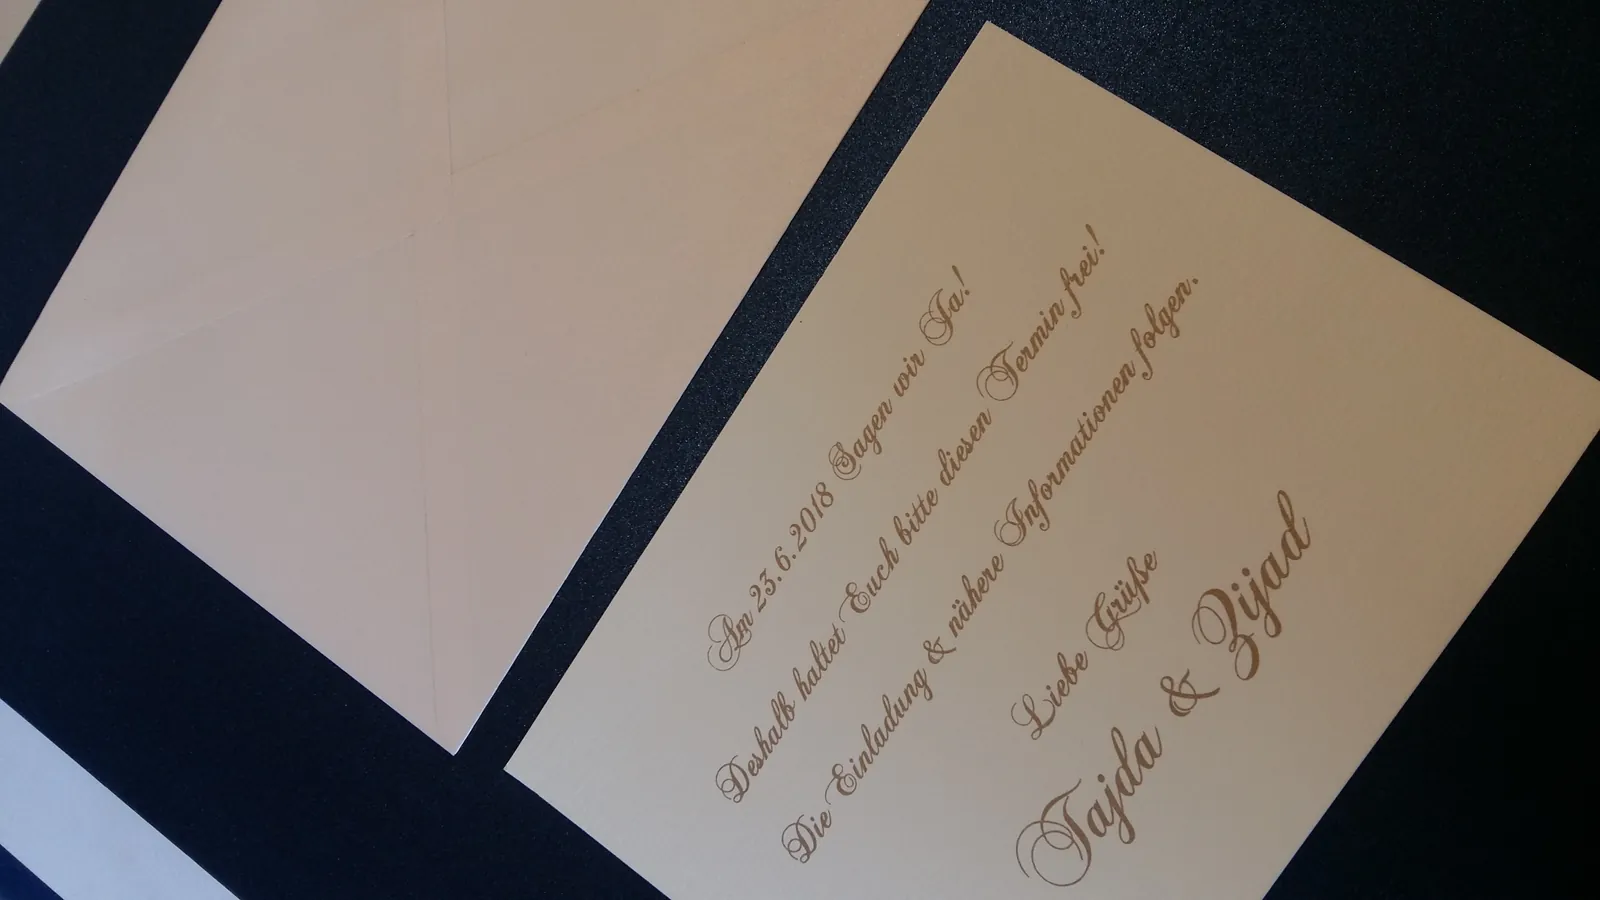 Am 23.6.2018 Sagen wir Ja!
Deshalb haltet Euch bitte diesen Termin frei!
Die Einladung & nähere Informationen folgen.
Liebe Grüße
Tajda & Zijad